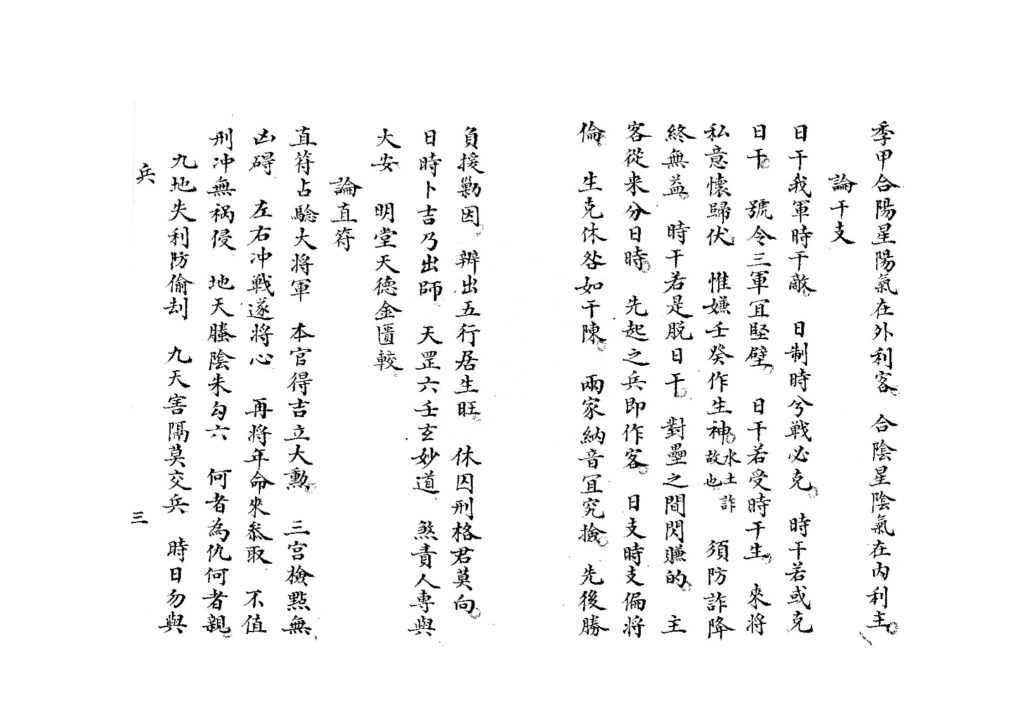 季甲合陽星陽氣在外利客 合陰星陰氣在內利主
論干支
日干我軍時干敵 日制時兮戰必克 時干若或克
日干 號令三軍宜堅壁 日干若受時干生 來將
私意懷歸伏 惟嫌壬癸作生神水土詐故也 須防詐降
終無益 時干若是脫日干 對壘之間閃賺的 主
客從來分日時 先起之兵即作客 日支時支偏將
倫 生克休咎如干陳 兩家納音宜究撿 先後勝
負援勦因 辨出五行居生旺 休囚刑格君莫向
日時卜吉乃出師 天罡六壬玄妙道 煞責人專與
大安 明堂天德金匱較
論直符
直符占驗大將軍 本官得吉立大勳 三宮檢點無
凶碍 左右冲戦遂將心 再將年命來叅取 不值
刑冲無祸侵 地天螣陰朱勾六 何者為仇何者親
九地失利防偷刦 九天害隔莫交兵 時日勿與
兵 三